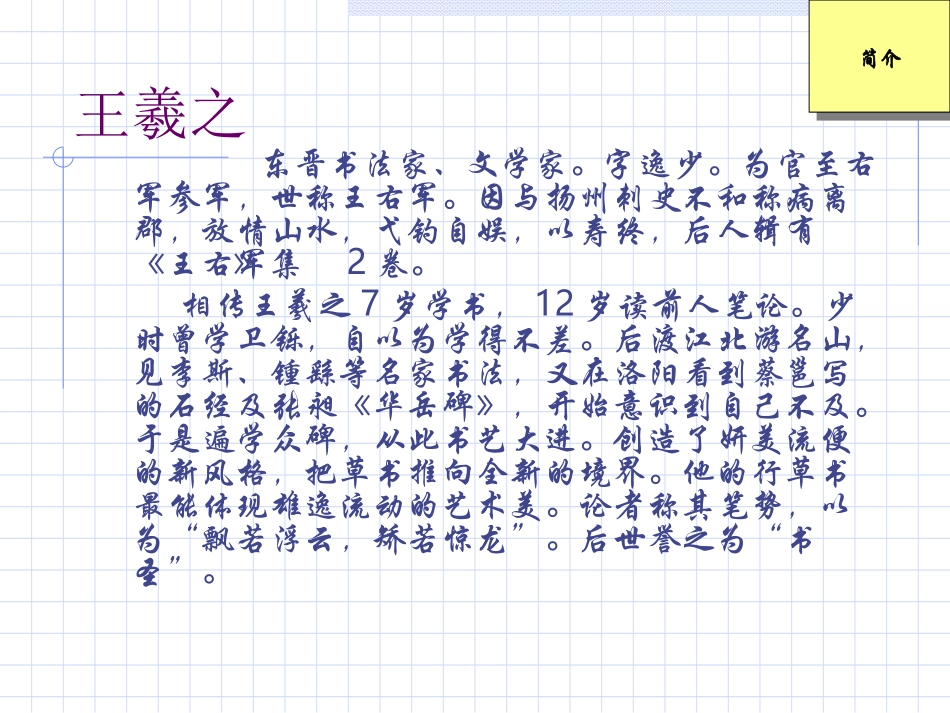 简介
王羲之
东晋书法家、文学家。字逸少。为官至右
军参军，世称王右军。因与扬州刺史不和称病离
郡，放情山水，弋钓自娱，以寿终，后人辑有
《王右军集》 2 卷。
相传王羲之 7 岁学书， 12 岁读前人笔论。少
时曾学卫铄，自以为学得不差。后渡江北游名山，
见李斯、鍾繇等名家书法，又在洛阳看到蔡邕写
的石经及张昶《华岳碑》，开始意识到自己不及。
于是遍学众碑，从此书艺大进。创造了妍美流便
的新风格，把草书推向全新的境界。他的行草书
最能体现雄逸流动的艺术美。论者称其笔势，以
为“飘若浮云，矫若惊龙”。后世誉之为“书
圣”。